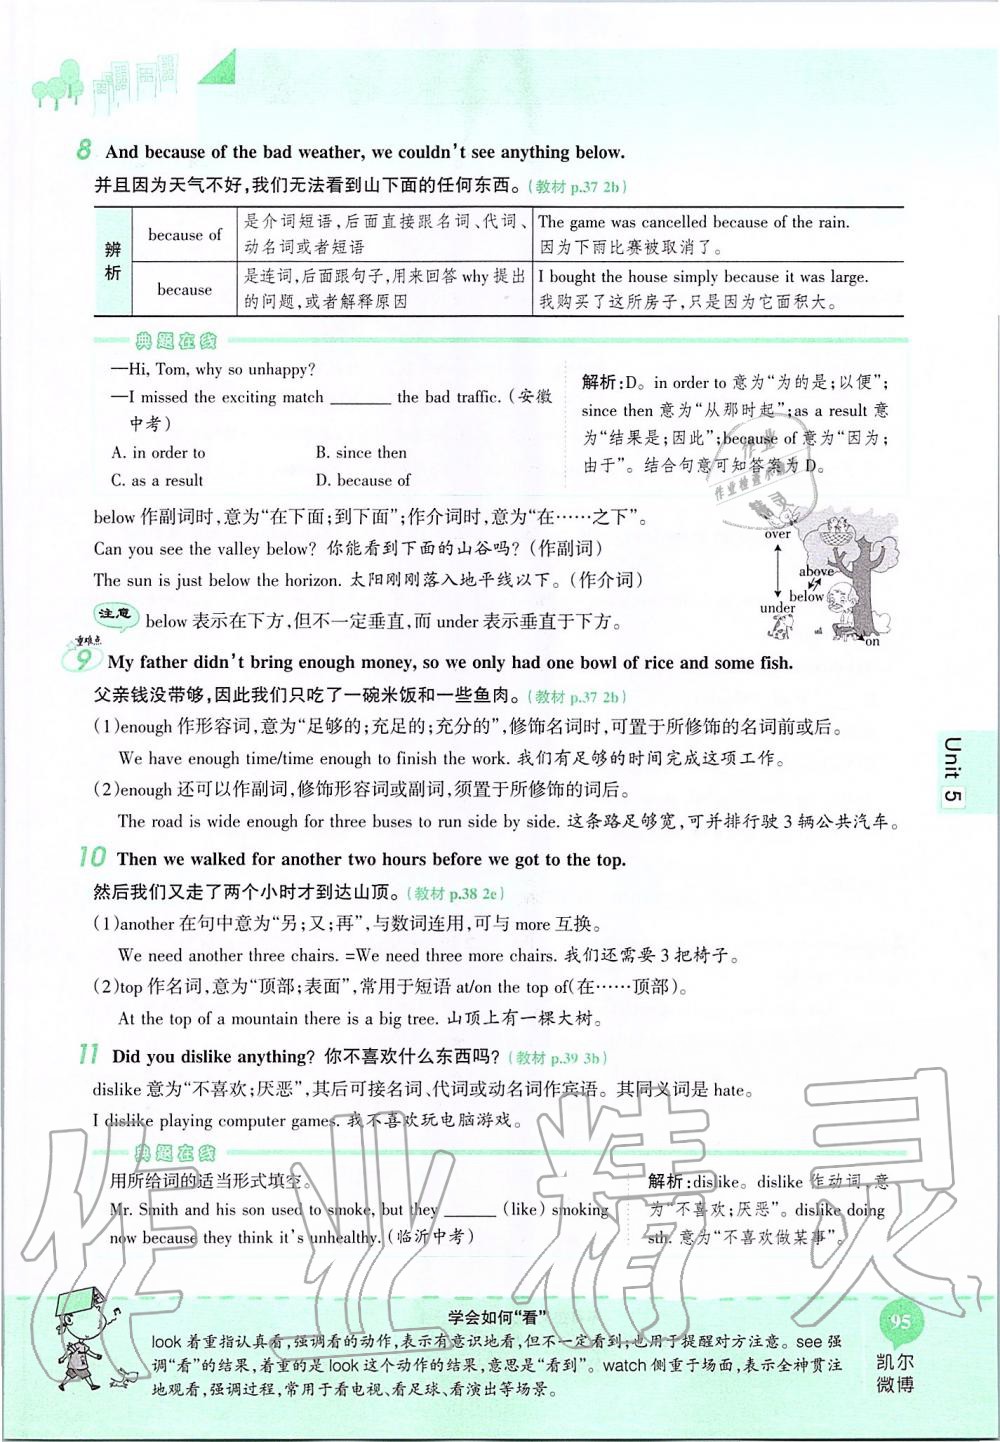 8 And because of the bad weather, we couldn't see anything below.
并且因为天气不好,我们无法看到山下面的任何东西。(教材 p.37 2b)
辨析
because of
是介词短语,后面直接跟名词、代词、
动名词或者短语
The game was cancelled because of the rain.
因为下雨比赛被取消了。
because
是连词,后面跟句子,用来回答 why 提出
的问题,或者解释原因
I bought the house simply because it was large.
我购买了这所房子,只是因为它面积大。
典题在线
—Hi, Tom, why so unhappy?
—I missed the exciting match _______ the bad traffic.(安徽
中考)
A. in order to B. since then
C. as a result D. because of
解析:D。in order to 意为“为的是;以便”;
since then 意为“从那时起”;as a result 意
为“结果是;因此”;because of 意为“因为;
由于”。结合句意可知答案为 D。
below 作副词时,意为“在下面;到下面”;作介词时,意为“在……之下”。
Can you see the valley below? 你能看到下面的山谷吗?(作副词)
The sun is just below the horizon. 太阳刚刚落入地平线以下。(作介词)
注意 below 表示在下方,但不一定垂直,而 under 表示垂直于下方。
over
above
below
under
on
重难点
9 My father didn't bring enough money, so we only had one bowl of rice and some fish.
父亲钱没带够,因此我们只吃了一碗米饭和一些鱼肉。(教材 p.37 2b)
(1)enough 作形容词,意为“足够的;充足的;充分的”,修饰名词时,可置于所修饰的名词前或后。
We have enough time/time enough to finish the work. 我们有足够的时间完成这项工作。
(2)enough 还可以作副词,修饰形容词或副词,须置于所修饰的词后。
The road is wide enough for three buses to run side by side. 这条路足够宽,可并排行驶 3 辆公共汽车。
Unit 5
10 Then we walked for another two hours before we got to the top.
然后我们又走了两个小时才到达山顶。(教材 p.38 2e)
(1)another 在句中意为“另;又;再”,与数词连用,可与 more 互换。
We need another three chairs. =We need three more chairs. 我们还需要 3 把椅子。
(2)top 作名词,意为“顶部;表面”,常用于短语 at/on the top of(在……顶部)。
At the top of a mountain there is a big tree. 山顶上有一棵大树。
11 Did you dislike anything? 你不喜欢什么东西吗?(教材 p.39 3b)
dislike 意为“不喜欢;厌恶”,其后可接名词、代词或动名词作宾语。其同义词是 hate。
I dislike playing computer games. 我不喜欢玩电脑游戏。
典题在线
用所给词的适当形式填空。
Mr. Smith and his son used to smoke, but they ______ (like) smoking
now because they think it's unhealthy.(临沂中考)
解析:dislike。dislike 作动词,意
为“不喜欢;厌恶”。dislike doing
sth. 意为“不喜欢做某事”。
作业精灵
学会如何“看”
look 着重指认真看,强调看的动作,表示有意识地看,但不一定看到;也用于提醒对方注意。see 强
调“看”的结果,着重的是 look 这个动作的结果,意思是“看到”。watch 侧重于场面,表示全神贯注
地观看,强调过程,常用于看电视、看足球、看演出等场景。
95
凯尔
微博